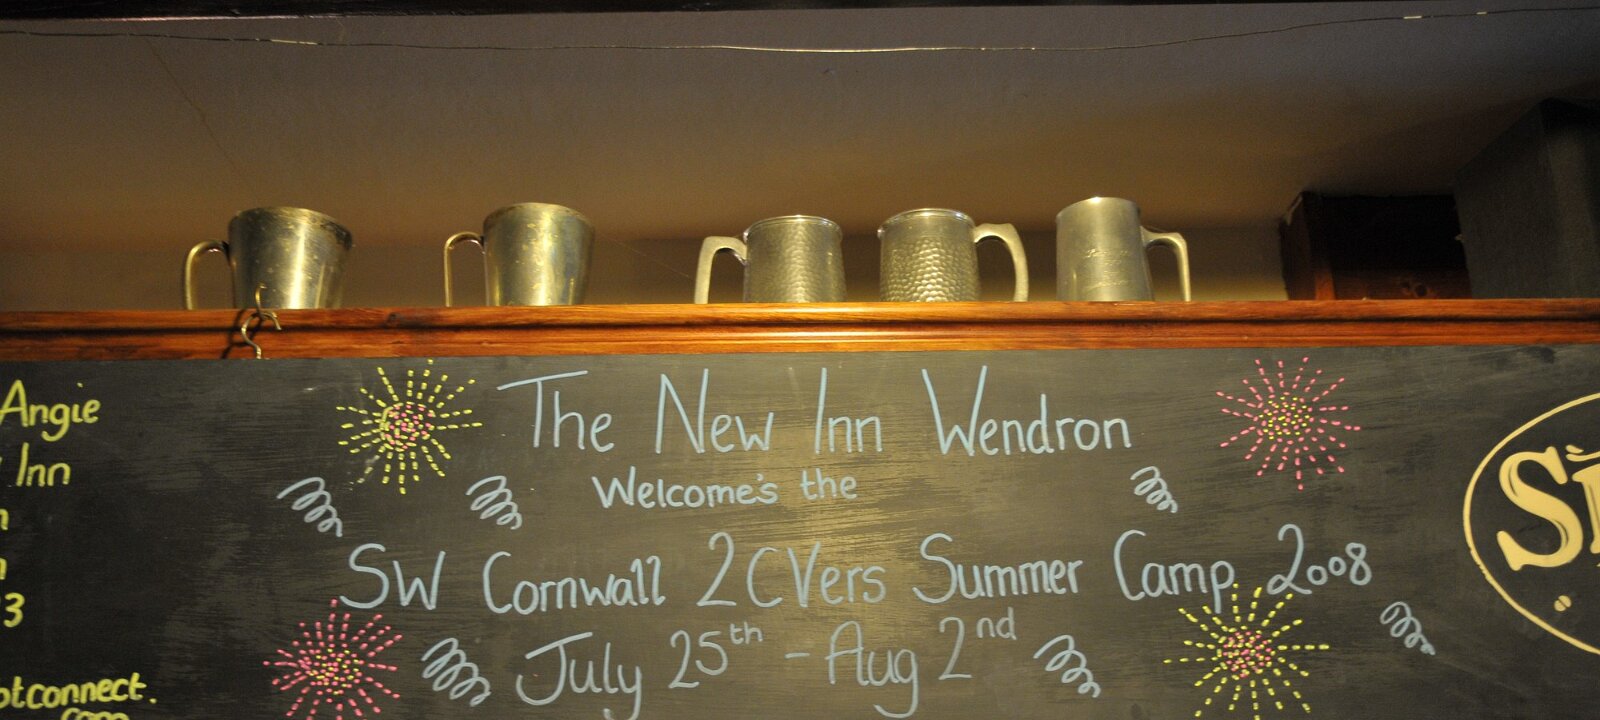 The New Inn Wendron
Welcome's the
SW Cornwall 2CVers Summer Camp 2008
July 25th - Aug 2nd
Angie
Inn
3
otconnect.
com